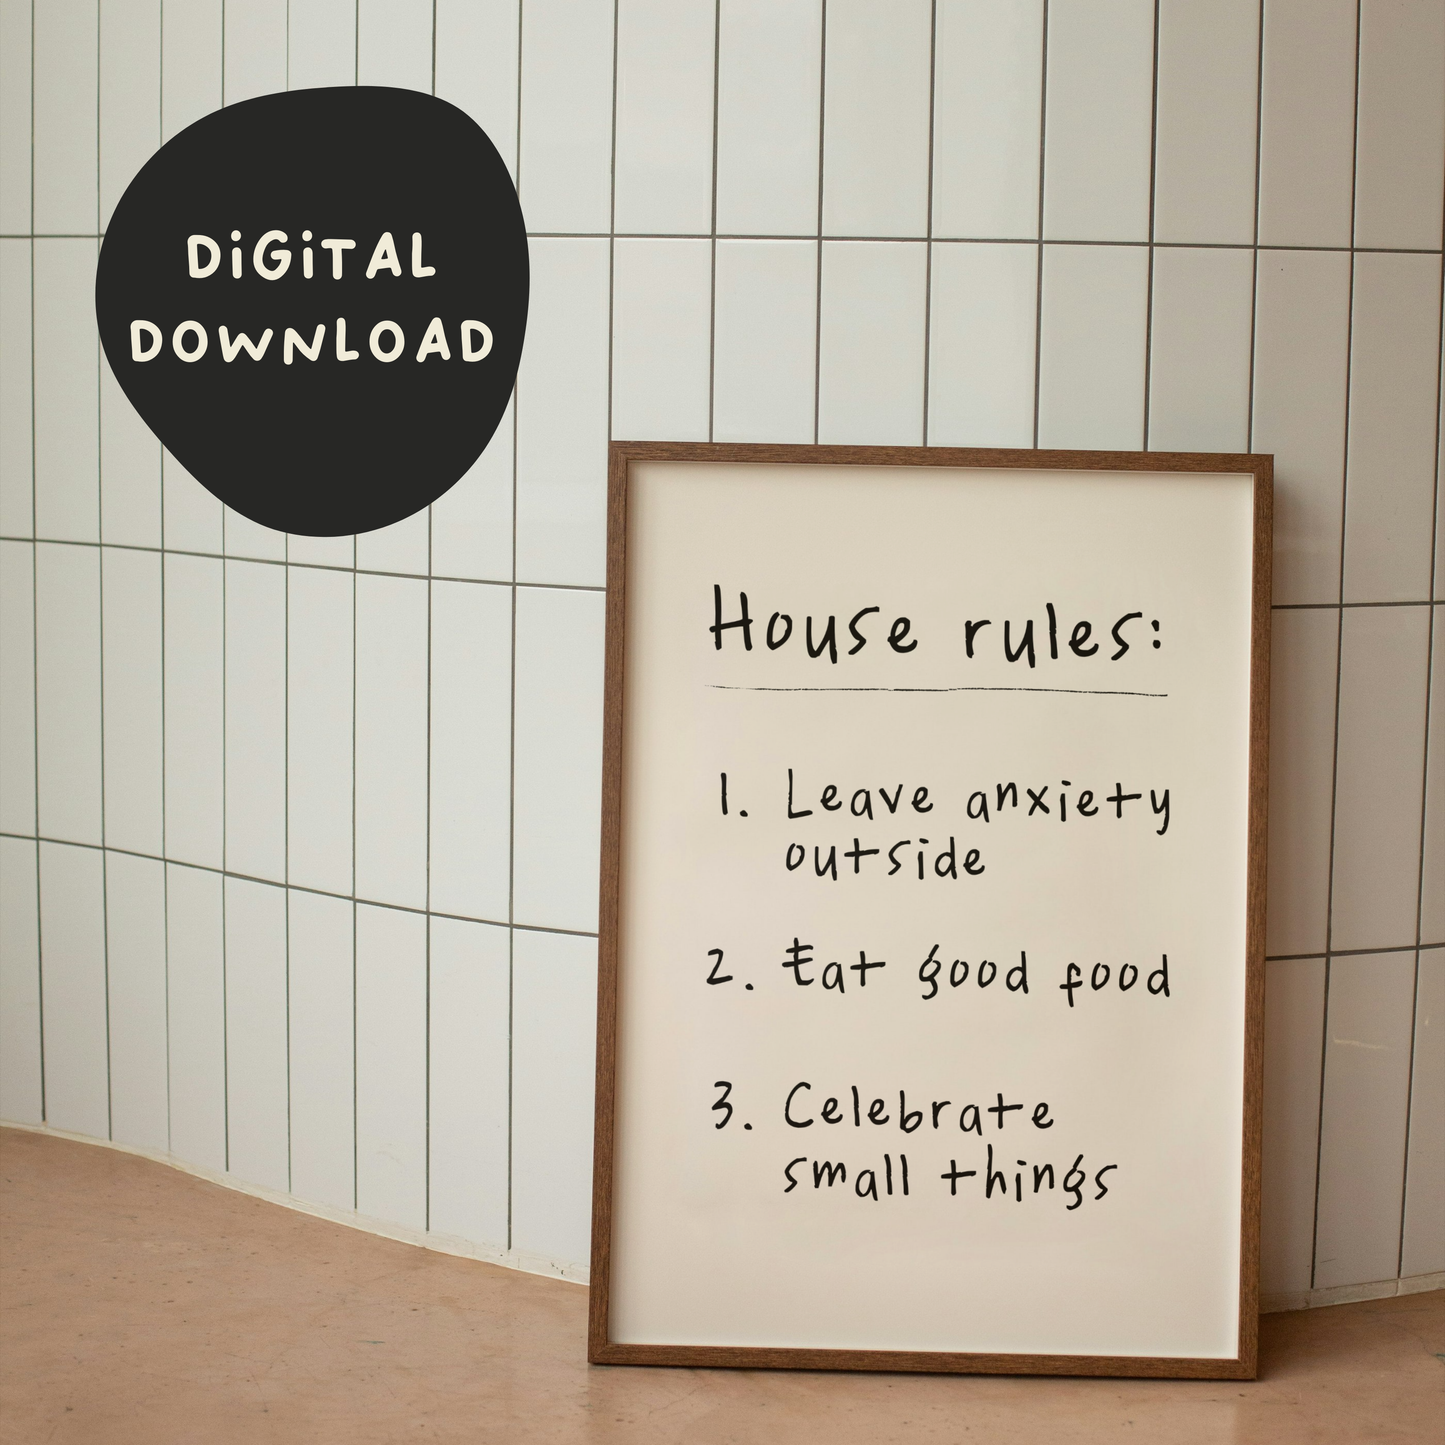 DiGiTAL
DOWNLOAD
House rules:
1. Leave anxiety
outside
2. Eat good food
3. Celebrate
small things